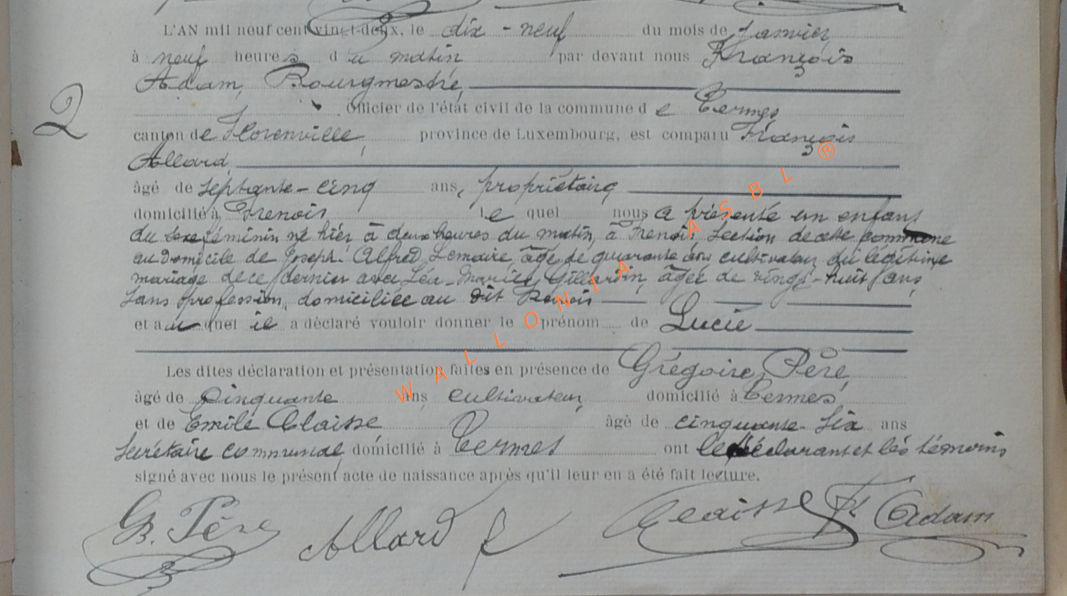 L'AN mil neuf cent vingt-deux, le dix-neuf du mois de Janvier
à neuf heures du matin par devant nous François
Adam, Bourgmestre,
Officier de l'état civil de la commune de Termes,
2
canton de Florenville, province de Luxembourg, est comparu François
Allard,
âgé de septante-cinq ans, propriétaire
domicilié à Frenois lequel nous a présenté un enfant
du sexe féminin né hier à deux heures du matin, à Frenois section de cette commune
au domicile de Joseph Alfred Lemaire, âgé de quarante ans cultivateur du légitime
mariage de ce dernier avec Léa Maria Gillardin, âgée de vingt-huit ans,
sans profession, domiciliée au dit Frenois
et auquel il a déclaré vouloir donner le prénom de Lucie
Les dites déclaration et présentation faites en présence de Grégoire Père,
âgé de cinquante ans cultivateur, domicilié à Termes,
et de Emile Claisse âgé de cinquante-six ans
Secrétaire communal, domicilié à Termes ont le déclarant et les témoins
signé avec nous le présent acte de naissance après qu'il leur en a été fait lecture.
G. Père Allard f Claisse Fs Adam
WALLONIA ASBL ®